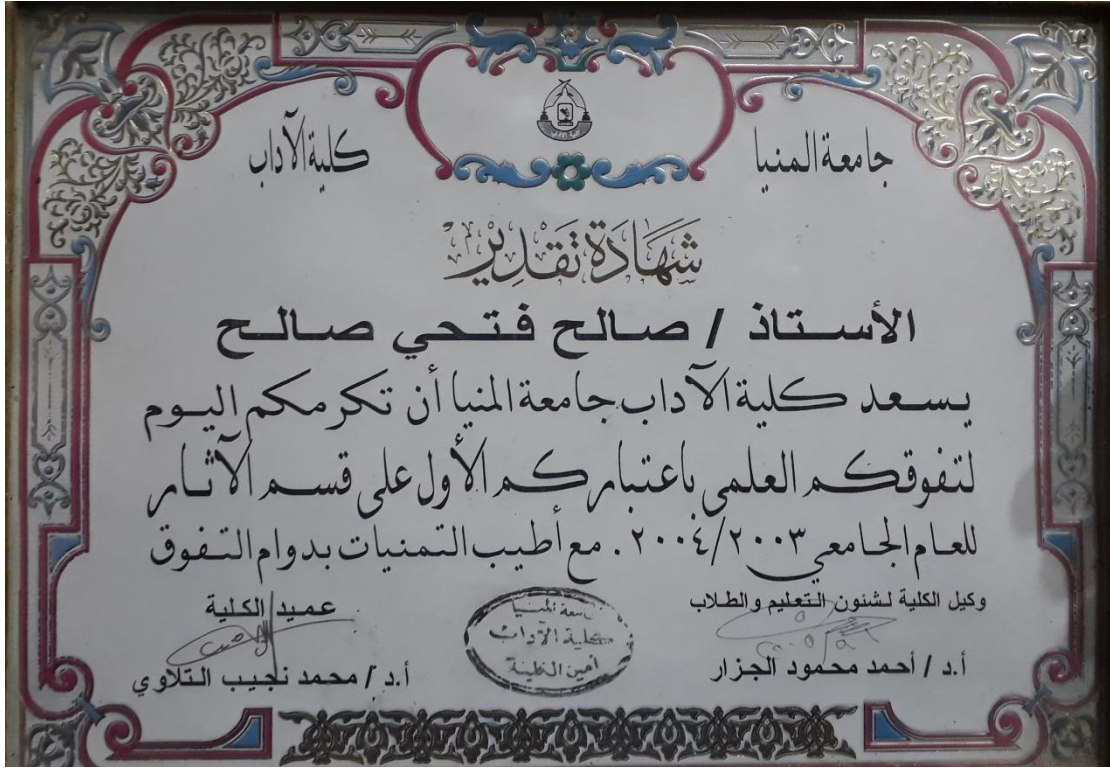 جامعة المنيا
كلية الآداب
شهادة تقدير
الأستاذ / صالح فتحي صالح
يسعد كلية الآداب جامعة المنيا أن تكرمكم اليوم
لتفوقكم العلمي باعتباركم الأول على قسم الآثار
للعام الجامعي ٢٠٠٣/٢٠٠٤ . مع أطيب التمنيات بدوام التفوق
وكيل الكلية لشئون التعليم والطلاب
عميد الكلية
جامعة المنيا
كلية الآداب
أمين الكلية
أ.د / أحمد محمود الجزار
أ.د / محمد نجيب التلاوي